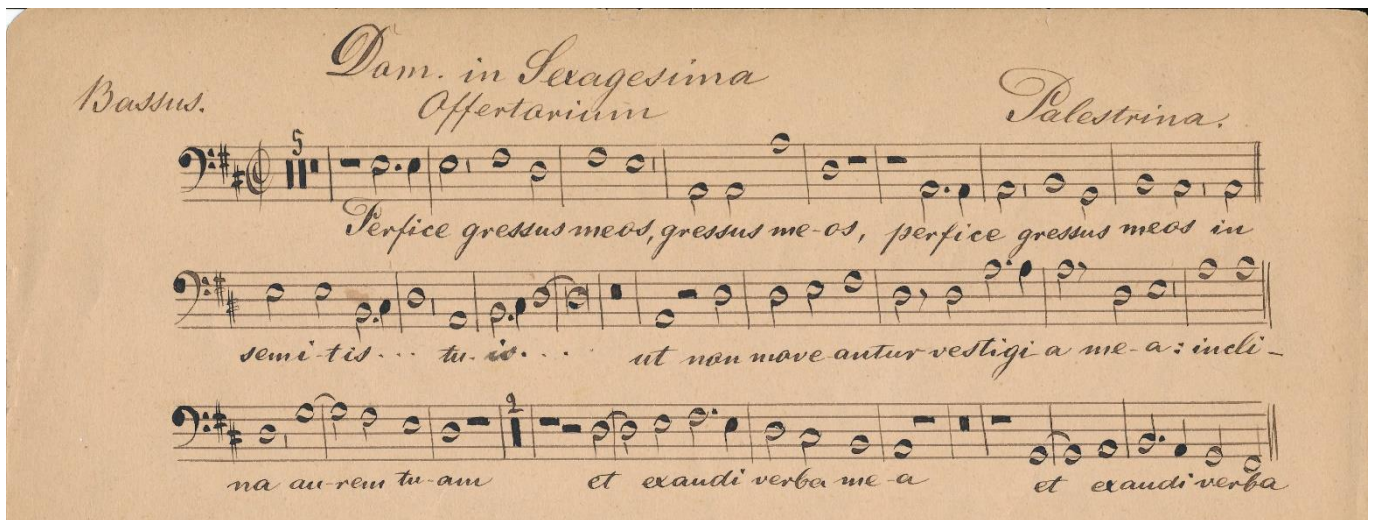 Dom. in Sexagesima
Bassus. Offertorium Palestrina.
5
Perfice gressus meos, gressus me-os, perfice gressus meos in
semi-tis... tu-is... ut non move-antur vestigi-a me-a: incli-
2
na au-rem tu-am et exaudi verba me-a et exaudi verba